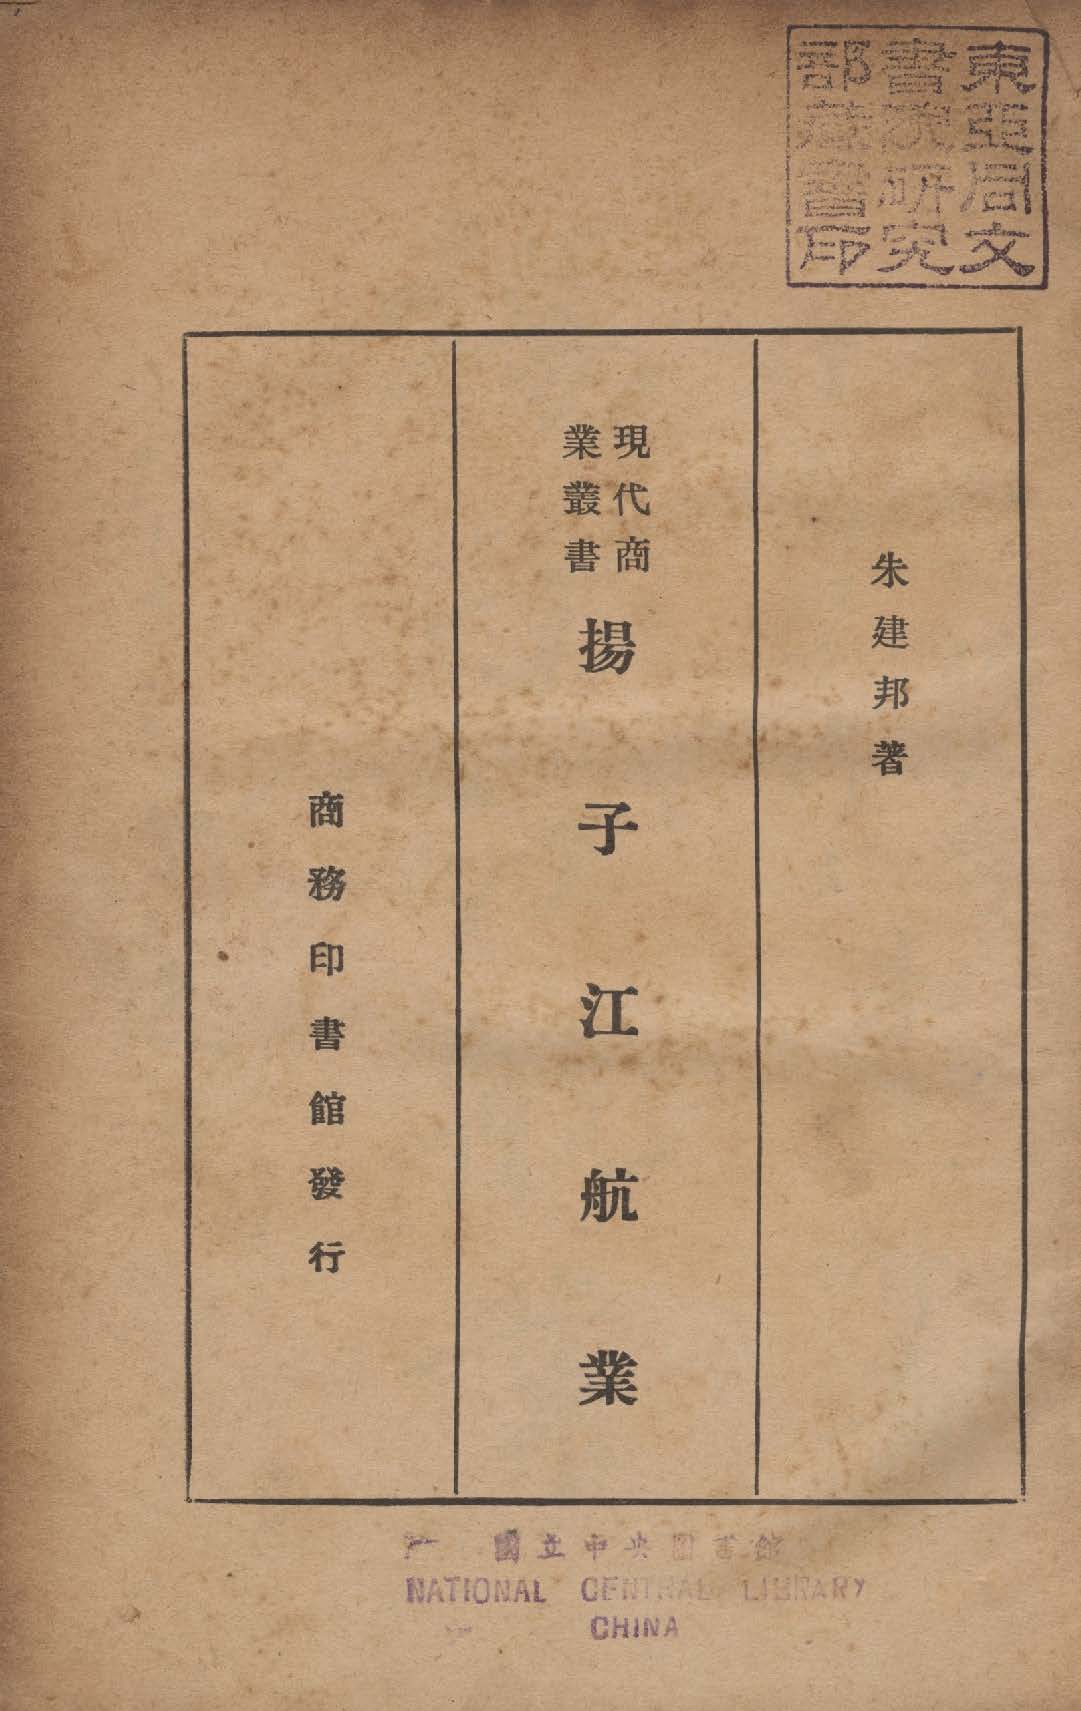 東亞同文
書院研究
部藏書印
朱建邦著
現代商
業叢書
揚子江航業
商務印書館發行
國立中央圖書館
NATIONAL CENTRAL LIBRARY
CHINA